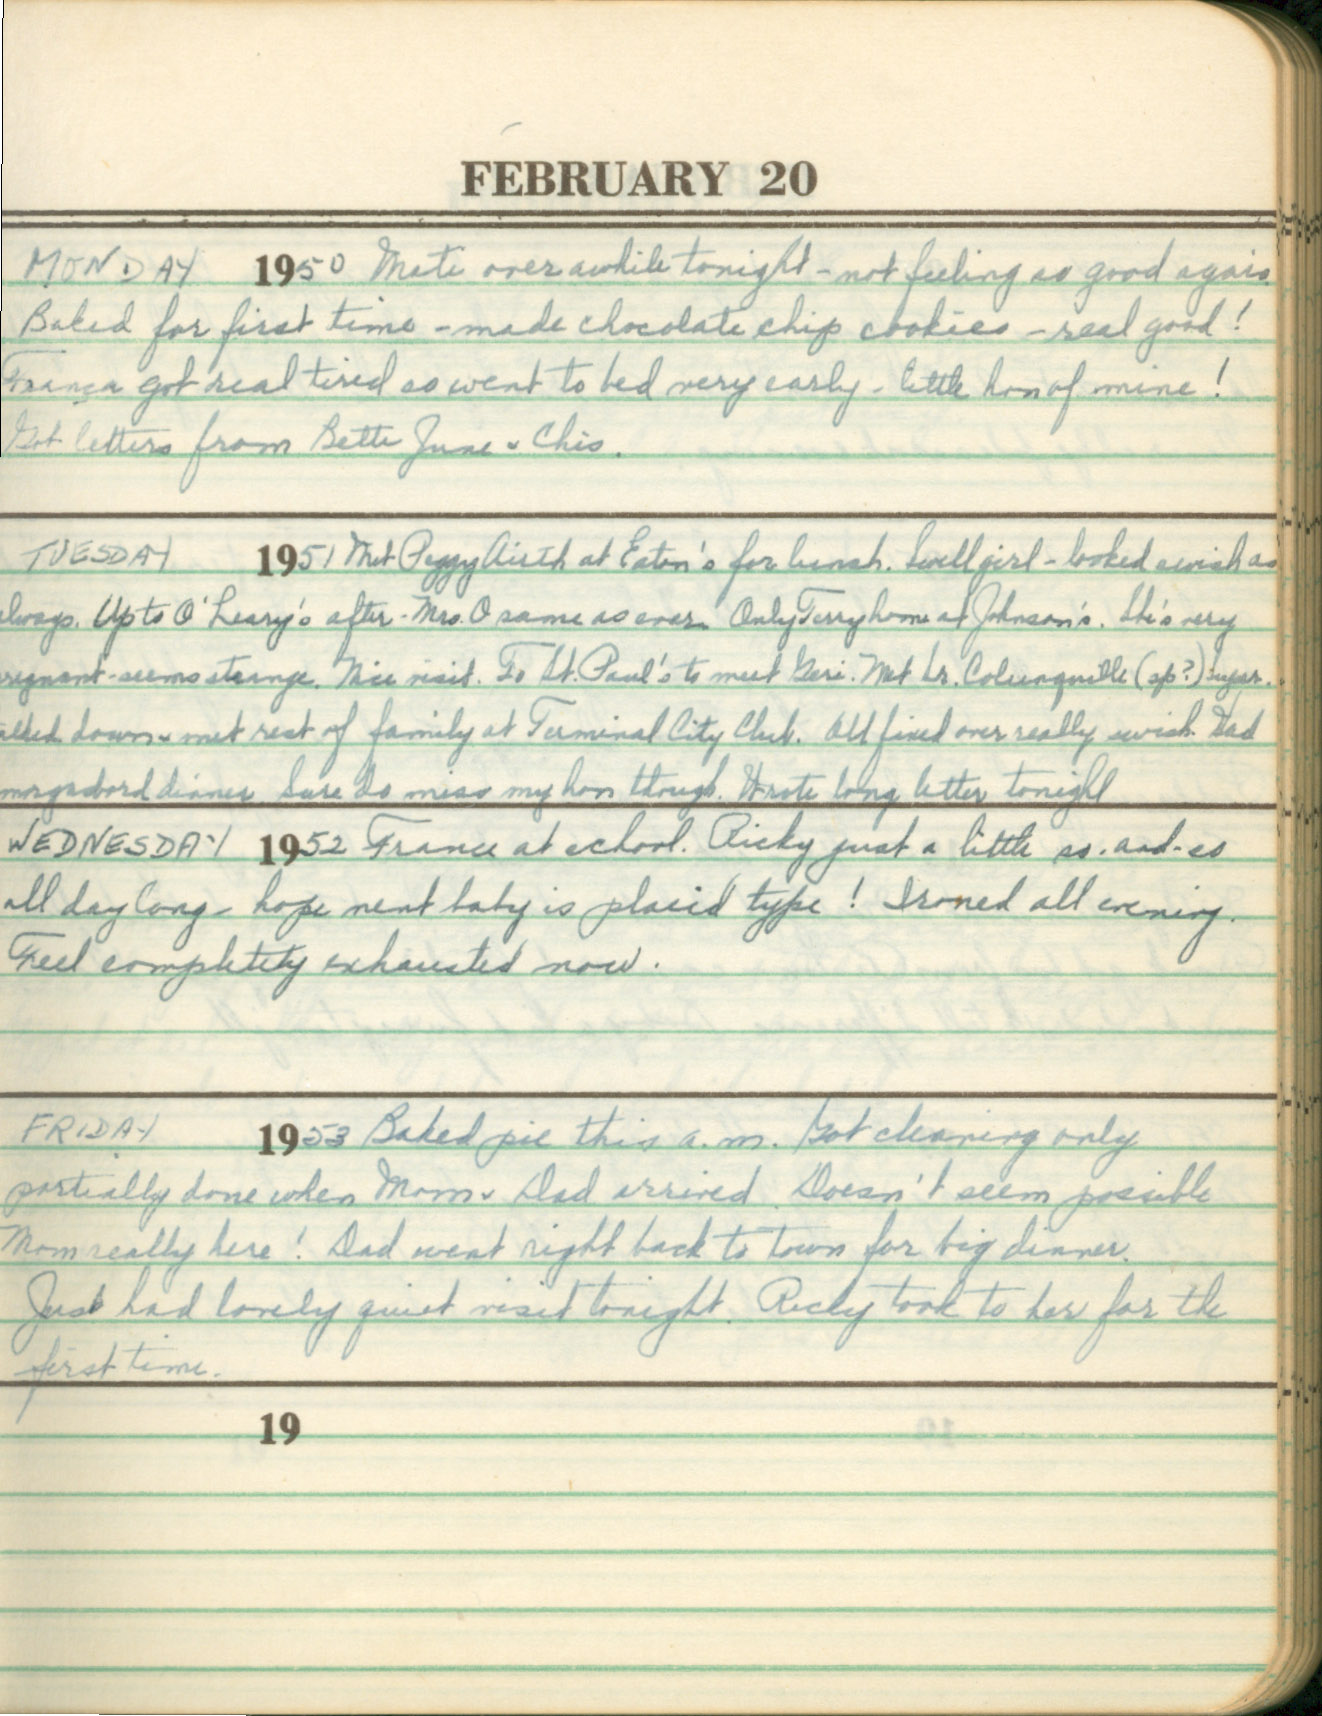 FEBRUARY 20
MONDAY 1950 Mate over awhile tonight - not feeling so good again
Baked for first time - made chocolate chip cookies - real good!
got real tired so went to bed very early - little hon of mine!
Got letters from Bette June & Chis.
TUESDAY 1951 Met Peggy Airth at Eaton's for lunch. Swell girl - looked swish as
always. Up to O'Leary's after - Mrs. O same as ever. Only Terry home at Johnson's. She's very
pregnant - seems strange. Nice visit. To St. Paul's to meet Geri. Met Dr. (sp?)
down & met rest of family at Terminal City Club. All fixed over really swish. Had
smorgasbord dinner. Sure do miss my hon though. Wrote long letter tonight
WEDNESDAY 1952 France at school. Ricky just a little so-and-so
all day long - hope next baby is placid type! Ironed all evening.
Feel completely exhausted now.
FRIDAY 1953 Baked pie this a.m. Got cleaning only
partially done when Mom & Dad arrived. Doesn't seem possible
Mom really here! Dad went right back to town for big dinner.
Just had lovely quiet visit tonight. Ricky took to her for the
first time.
19